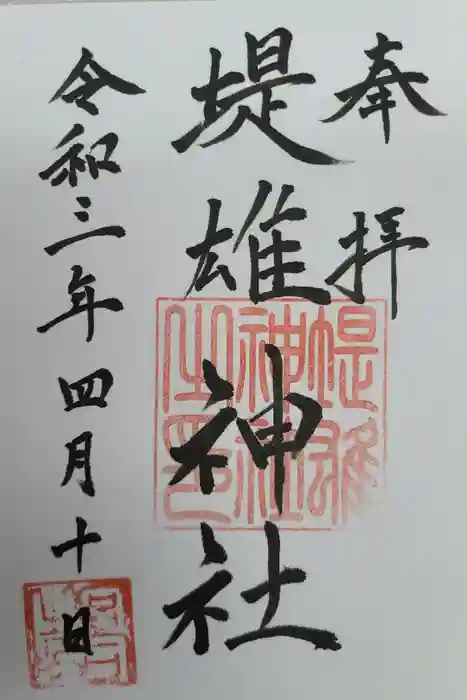 奉拝
堤雄神社
令和三年四月十日
堤雄
神社
之印